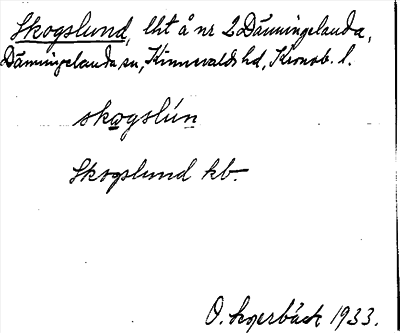 Skogslund, lht å nr 2 Dänningelanda,
Dänningelanda sn, Kinnevalds hd, Kronob. l.
skogslún
Skogslund kb.
O. 1933.